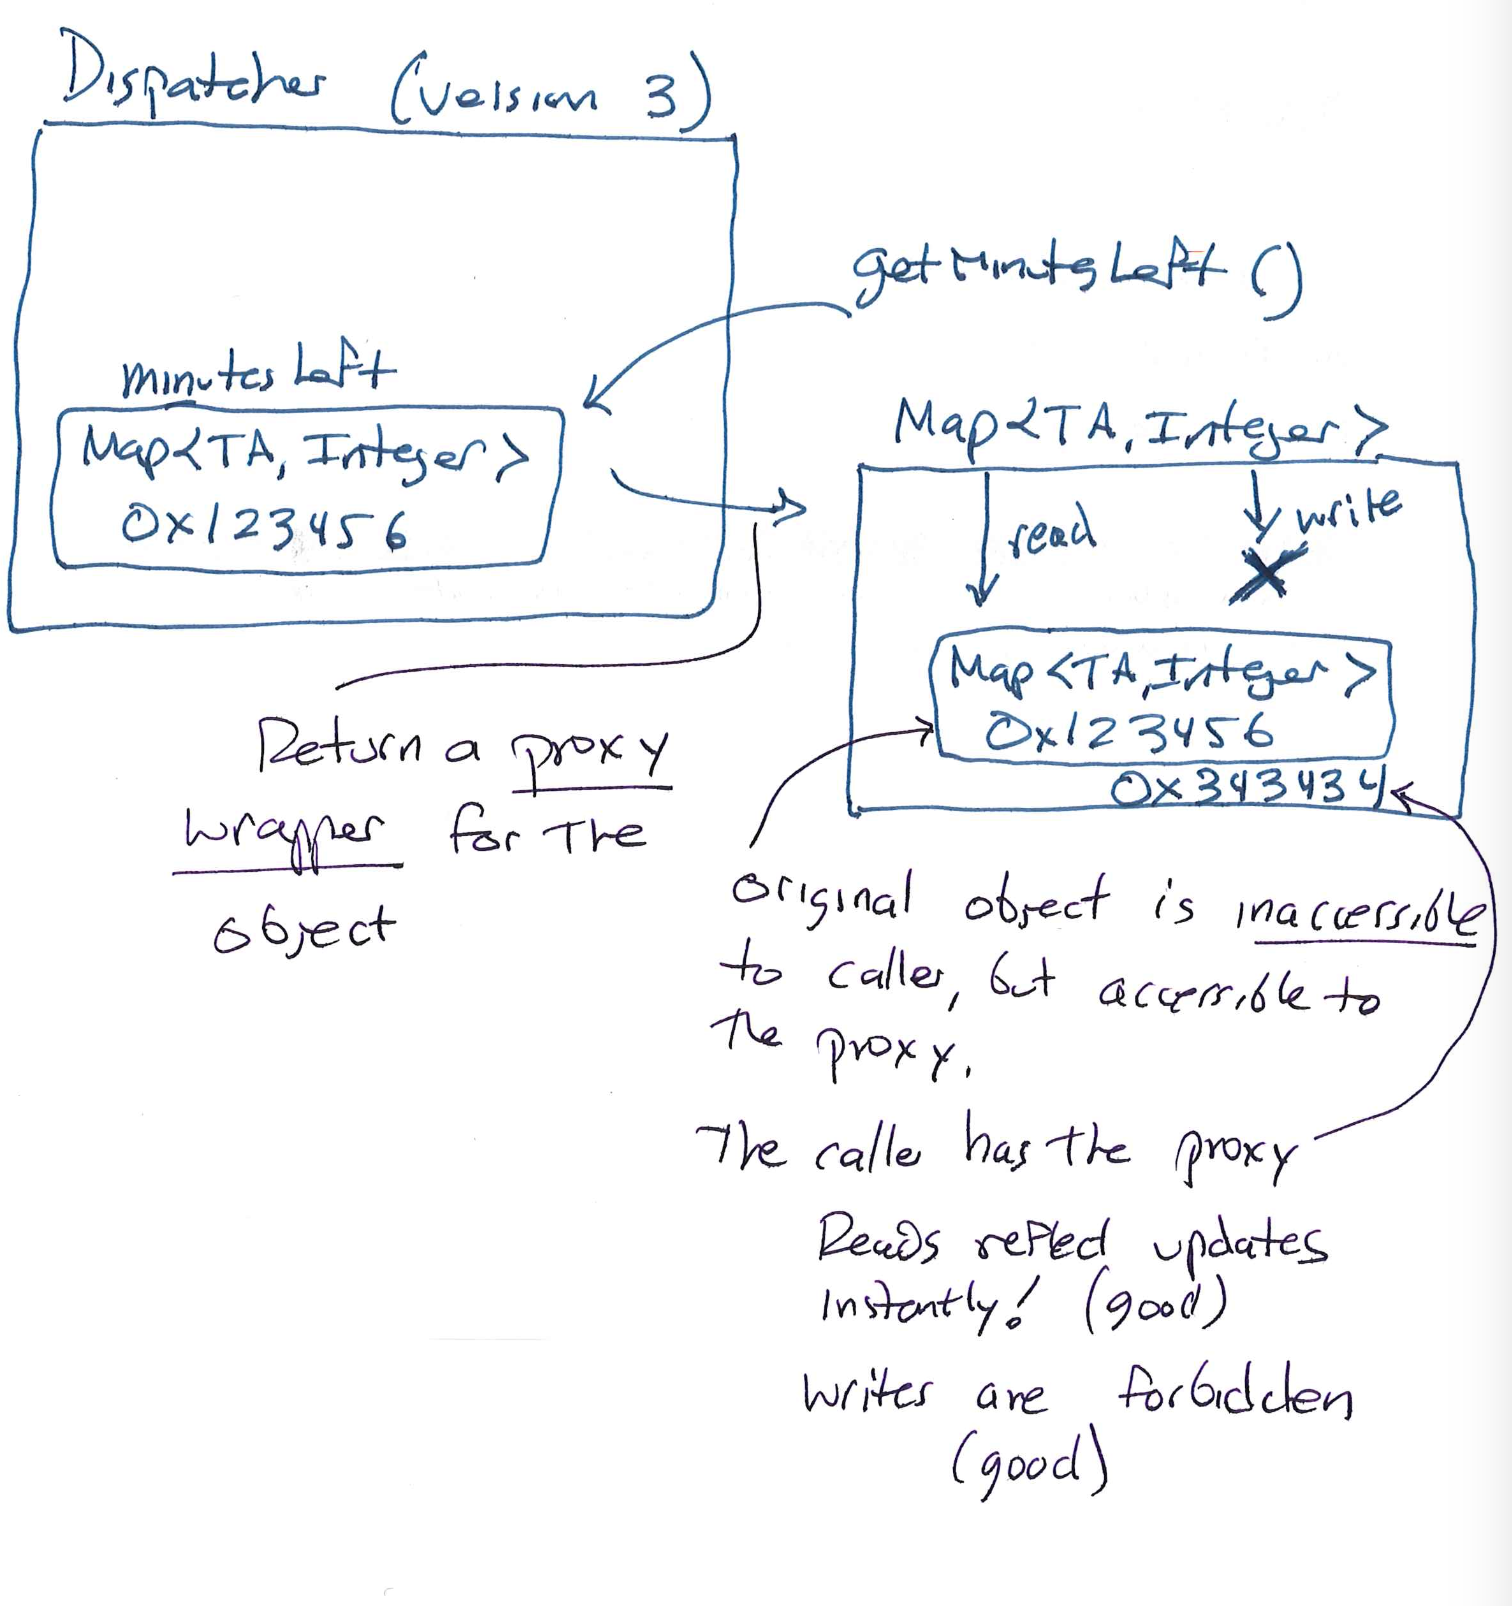 Dispatcher (version 3)
getMinutesLeft ()
minutesLeft
Map<TA, Integer>
0x123456
Map<TA, Integer>
read
write
Map<TA, Integer>
0x123456
0x343434
Return a proxy
wrapper for the
object
original object is inaccessible
to caller, but accessible to
the proxy.
The caller has the proxy
Reads reflect updates
instantly! (good)
writes are forbidden
(good)